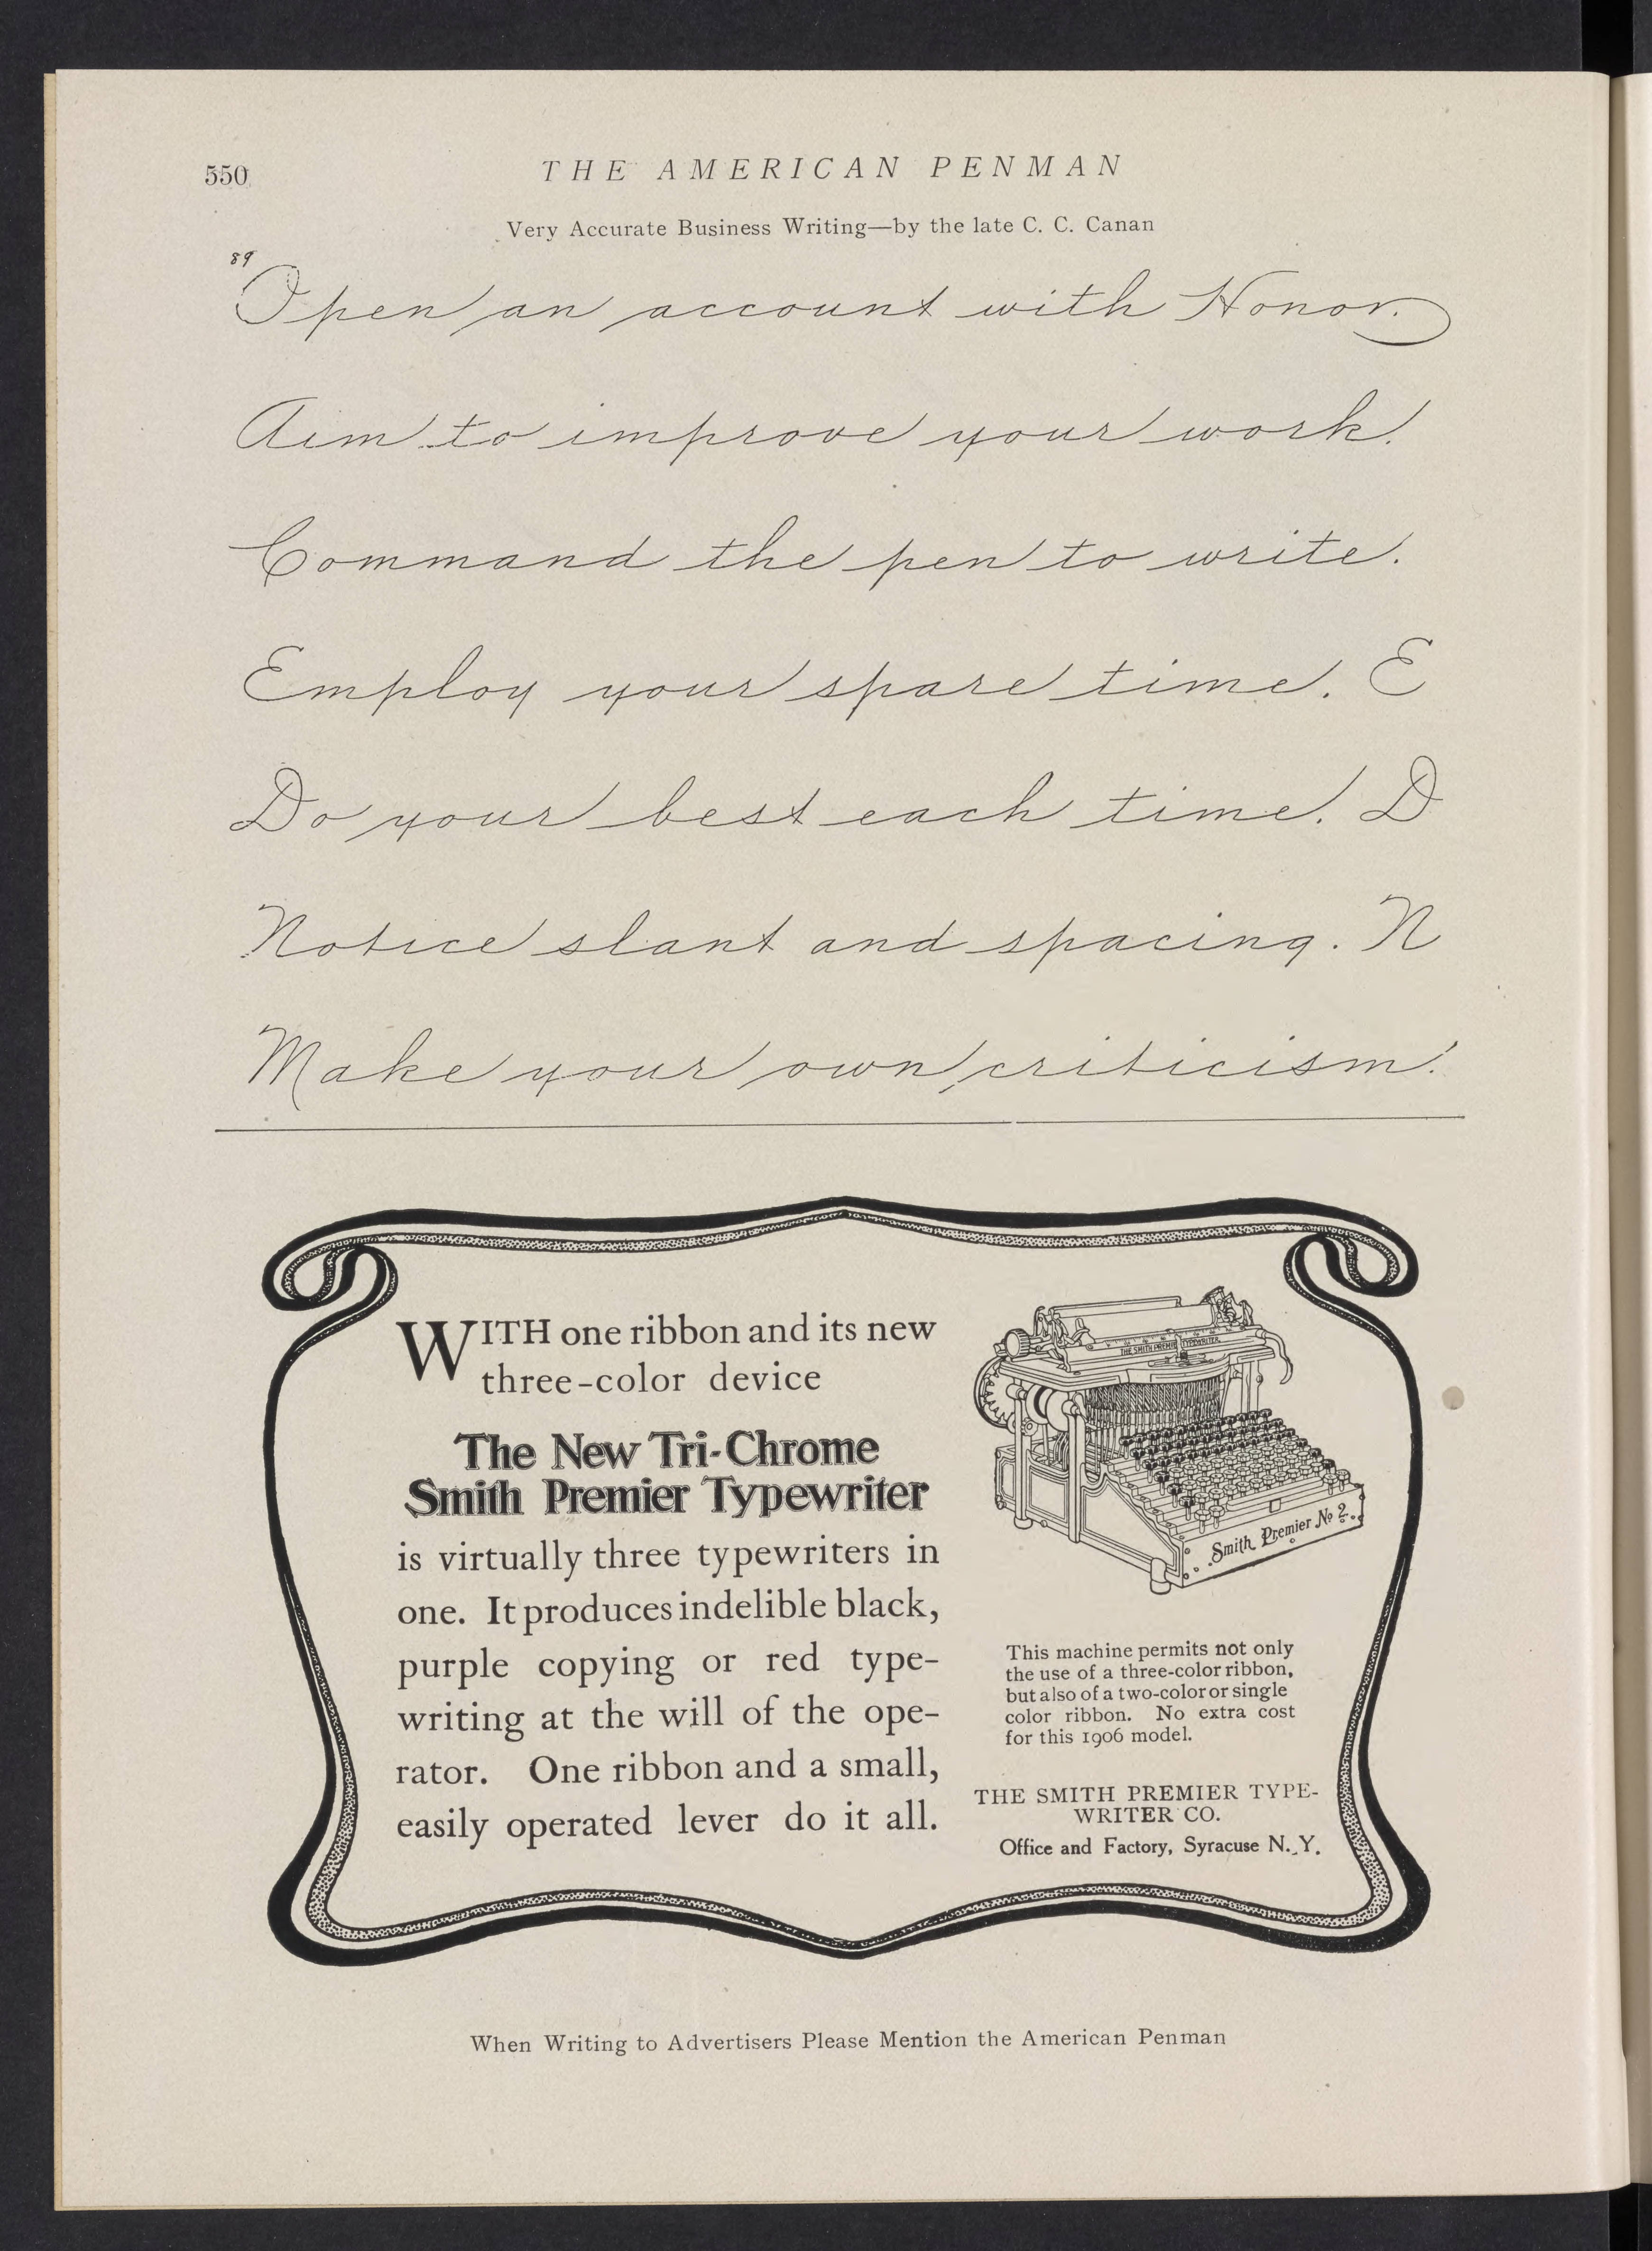 550
THE AMERICAN PENMAN
Very Accurate Business Writing—by the late C. C. Canan
89
Open an account with Honor.
Aim to improve your work.
Command the pen to write.
Employ your spare time. E
Do your best each time. D
Notice slant and spacing. N
Make your own criticism.
WITH one ribbon and its new
three-color device
The New Tri-Chrome
Smith Premier Typewriter
is virtually three typewriters in
one. It produces indelible black,
purple copying or red type-
writing at the will of the ope-
rator. One ribbon and a small,
easily operated lever do it all.
THE SMITH PREMIER TYPEWRITER
Smith Premier No 2.
This machine permits not only
the use of a three-color ribbon,
but also of a two-color or single
color ribbon. No extra cost
for this 1906 model.
THE SMITH PREMIER TYPE-
WRITER CO.
Office and Factory, Syracuse N. Y.
When Writing to Advertisers Please Mention the American Penman